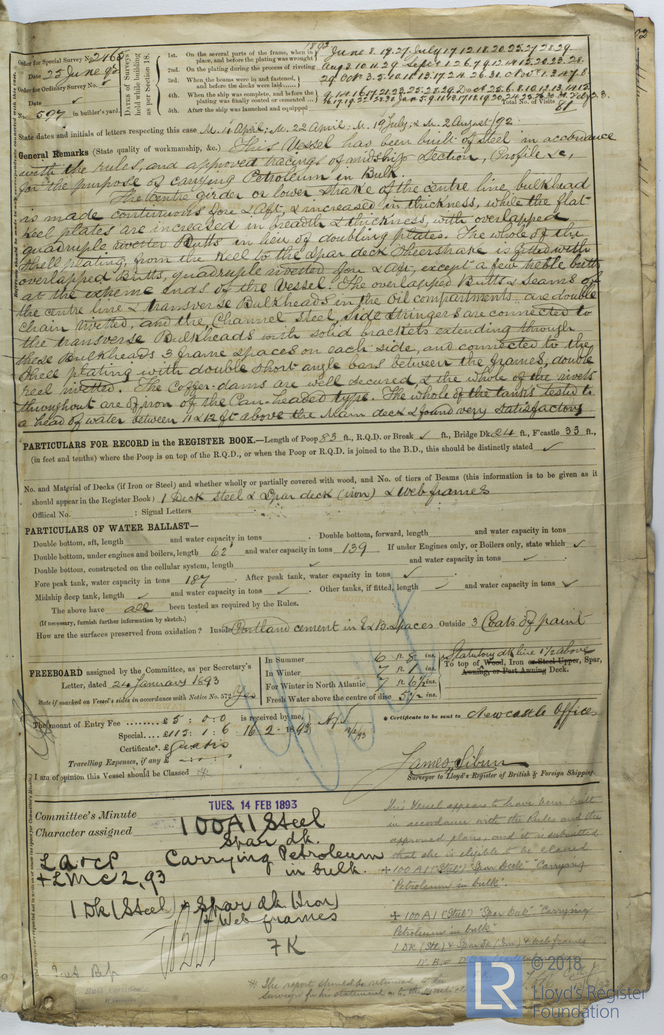 Order for Special Survey No. 2465
Date 22 June 92
Order for Ordinary Survey No.
Date
No. 597 in builder's yard.
Dates of Surveys held while building as per Section 18.
1st. On the several parts of the frame, when in place, and before the plating was wrought
2nd. On the plating during the process of riveting
3rd. When the beams were in and fastened, and before the decks were laid
4th. When the ship was complete, and before the plating was finally coated or cemented
5th. After the ship was launched and equipped
Total No. of Visits 81
State dates and initials of letters respecting this case M. 16 April; M. 22 April; M. 19 July, & M. 2 August '92.
General Remarks (State quality of workmanship, &c.) This Vessel has been built of Steel in accordance
with the rules, and approved tracings of midship Section, Profile &c,
for the purpose of carrying Petroleum in Bulk.
The Centre girder or lower strake of the centre line, bulkhead
is made continuous fore & aft, & increased in thickness, while the flat
keel plates are increased in breadth & thickness, with overlapped
quadruple rivetted Butts in lieu of doubling plates. The whole of the
Shell plating, from the Keel to the spar deck Sheerstrake is fitted with
overlapped Butts, quadruple rivetted fore & aft, except a few treble butts
at the extreme ends of the Vessel. The overlapped Butts & Seams of
the centre line & transverse Bulkheads in the Oil compartments, are double
chain rivetted, and the Channel Steel, Side Stringers are connected to
the transverse Bulkheads with solid brackets extending through
these Bulkheads 3 frame spaces on each side, and connected to the
Shell plating with double short angle bars between the frames, double
reel rivetted. The Coffer-dams are well secured, & the whole of the rivets
throughout are of iron of the Pan-headed type. The whole of the tanks tested to
a head of water between 11 & 12 ft above the Main deck & found very satisfactory
PARTICULARS FOR RECORD in the REGISTER BOOK.—Length of Poop 83 ft., R.Q.D. or Break ✓ ft., Bridge Dk. 24 ft., F'castle 33 ft.,
(in feet and tenths) where the Poop is on top of the R.Q.D., or when the Poop or R.Q.D. is joined to the B.D., this should be distinctly stated ✓
No. and Material of Decks (if Iron or Steel) and whether wholly or partially covered with wood, and No. of tiers of Beams (this information is to be given as it
should appear in the Register Book) 1 Deck Steel & Spar deck (iron) & Web frames
Official No. : Signal Letters
PARTICULARS OF WATER BALLAST—
Double bottom, aft, length and water capacity in tons . Double bottom, forward, length and water capacity in tons
Double bottom, under engines and boilers, length 62' and water capacity in tons 139 If under Engines only, or Boilers only, state which ✓
Double bottom, constructed on the cellular system, length ✓ and water capacity in tons ✓
Fore peak tank, water capacity in tons 187 . After peak tank, water capacity in tons ✓ .
Midship deep tank, length ✓ and water capacity in tons ✓ . Other tanks, if fitted, length ✓ and water capacity in tons ✓
The above have all been tested as required by the Rules.
(If necessary, furnish further information by sketch.)
How are the surfaces preserved from oxidation? Inside Portland cement in E & B Spaces Outside 3 Coats of paint
FREEBOARD assigned by the Committee, as per Secretary's
Letter, dated 24 January 1893
State if marked on Vessel's sides in accordance with Notice No. 572 Yes
In Summer 6 ft. 8 ins.
In Winter 7 ft. 1 ins.
For Winter in North Atlantic 7 ft. 6½ ins.
Fresh Water above the centre of disc 5½ ins.
Statutory dk line 1½ above
To top of Wood, Iron or Steel Upper, Spar,
Awning, or Part Awning Deck.
The amount of Entry Fee £5 : 0 : 0 is received by me,
Special £113 : 1 : 6 16.2.1893
Certificate* £ Gratis
Travelling Expenses, if any £
* Certificate to be sent to Newcastle Office
I am of opinion this Vessel should be Classed
James Sibun
Surveyor to Lloyd's Register of British & Foreign Shipping
Committee's Minute
TUES. 14 FEB 1893
Character assigned
100A1 Steel
Spar dk.
Carrying Petroleum
in bulk.
L.A.&C.P
+LMC 2,93
1 Dk (Steel) & Spar dk (Iron)
& Web frames
7K
This Vessel appears to have been built
in accordance with the Rules and the
approved plans, and it is submitted
that she is eligible to be classed
+ 100A1 (Steel) "Spar Deck" "Carrying
Petroleum in bulk".
+ 100A1 (Steel) "Spar Deck" "Carrying
Petroleum in bulk"
1 Dk (Stl) & Spar Dk (Irn) & Web frames
The report should be returned to the
© 2018
LR
Lloyd's Register
Foundation